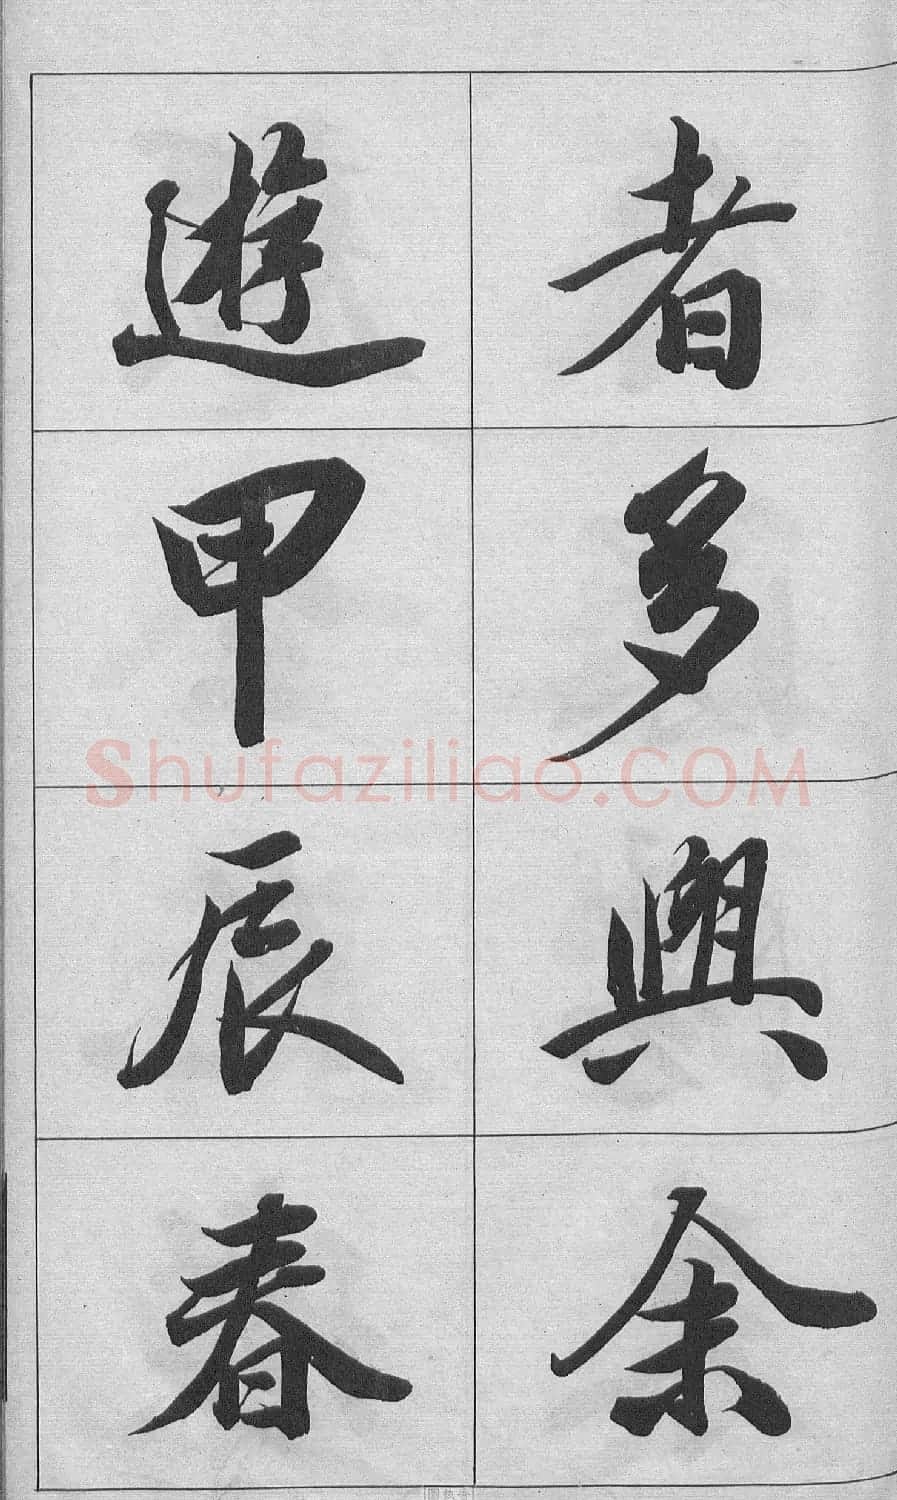 者多與余
遊甲辰春
Shufaziliao.COM